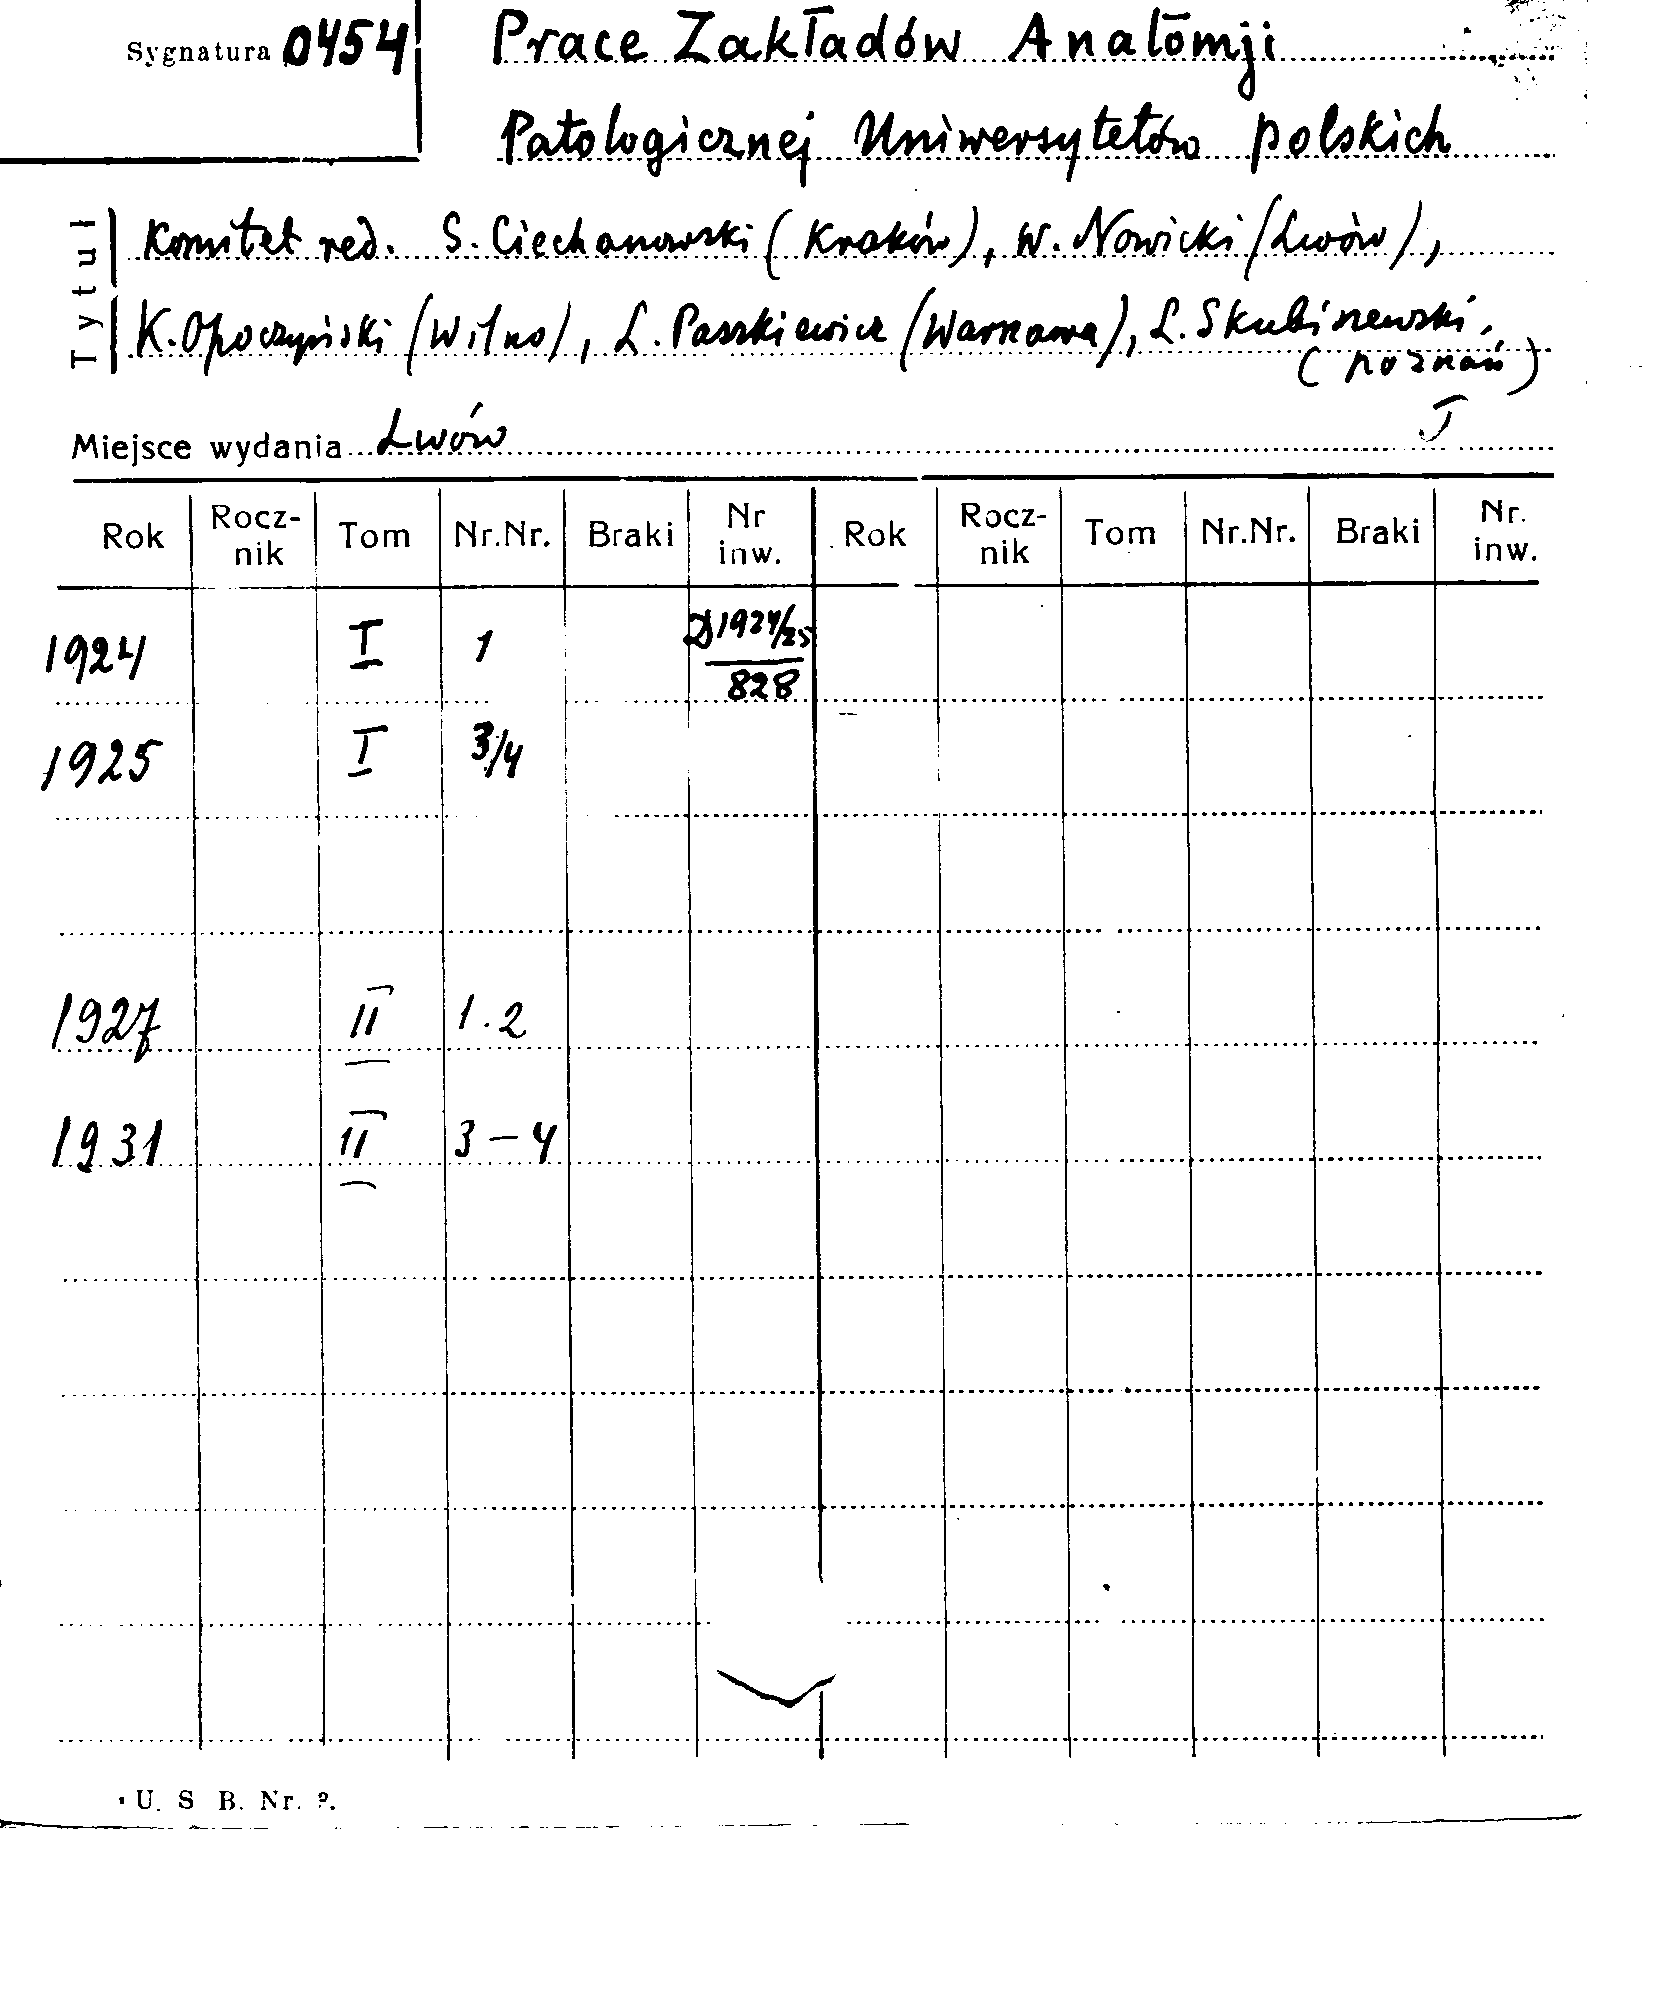 Sygnatura 0454
Prace Zakładów Anatomji
Patologicznej Uniwersytetów polskich
Tytuł
Komitet red. S. Ciechanowski (Kraków), W. Nowicki (Lwów),
K. Opoczyński (Wilno), L. Paszkiewicz (Warszawa), L. Skubiszewski,
(Poznań)
Miejsce wydania Lwów I
Rok Rocz-nik Tom Nr.Nr. Braki Nr inw. Rok Rocz-nik Tom Nr.Nr. Braki Nr. inw.
1924 I 1 D 1924/25
828
1925 I 3/4
1927 II 1.2
1931 II 3-4
U. S B. Nr.